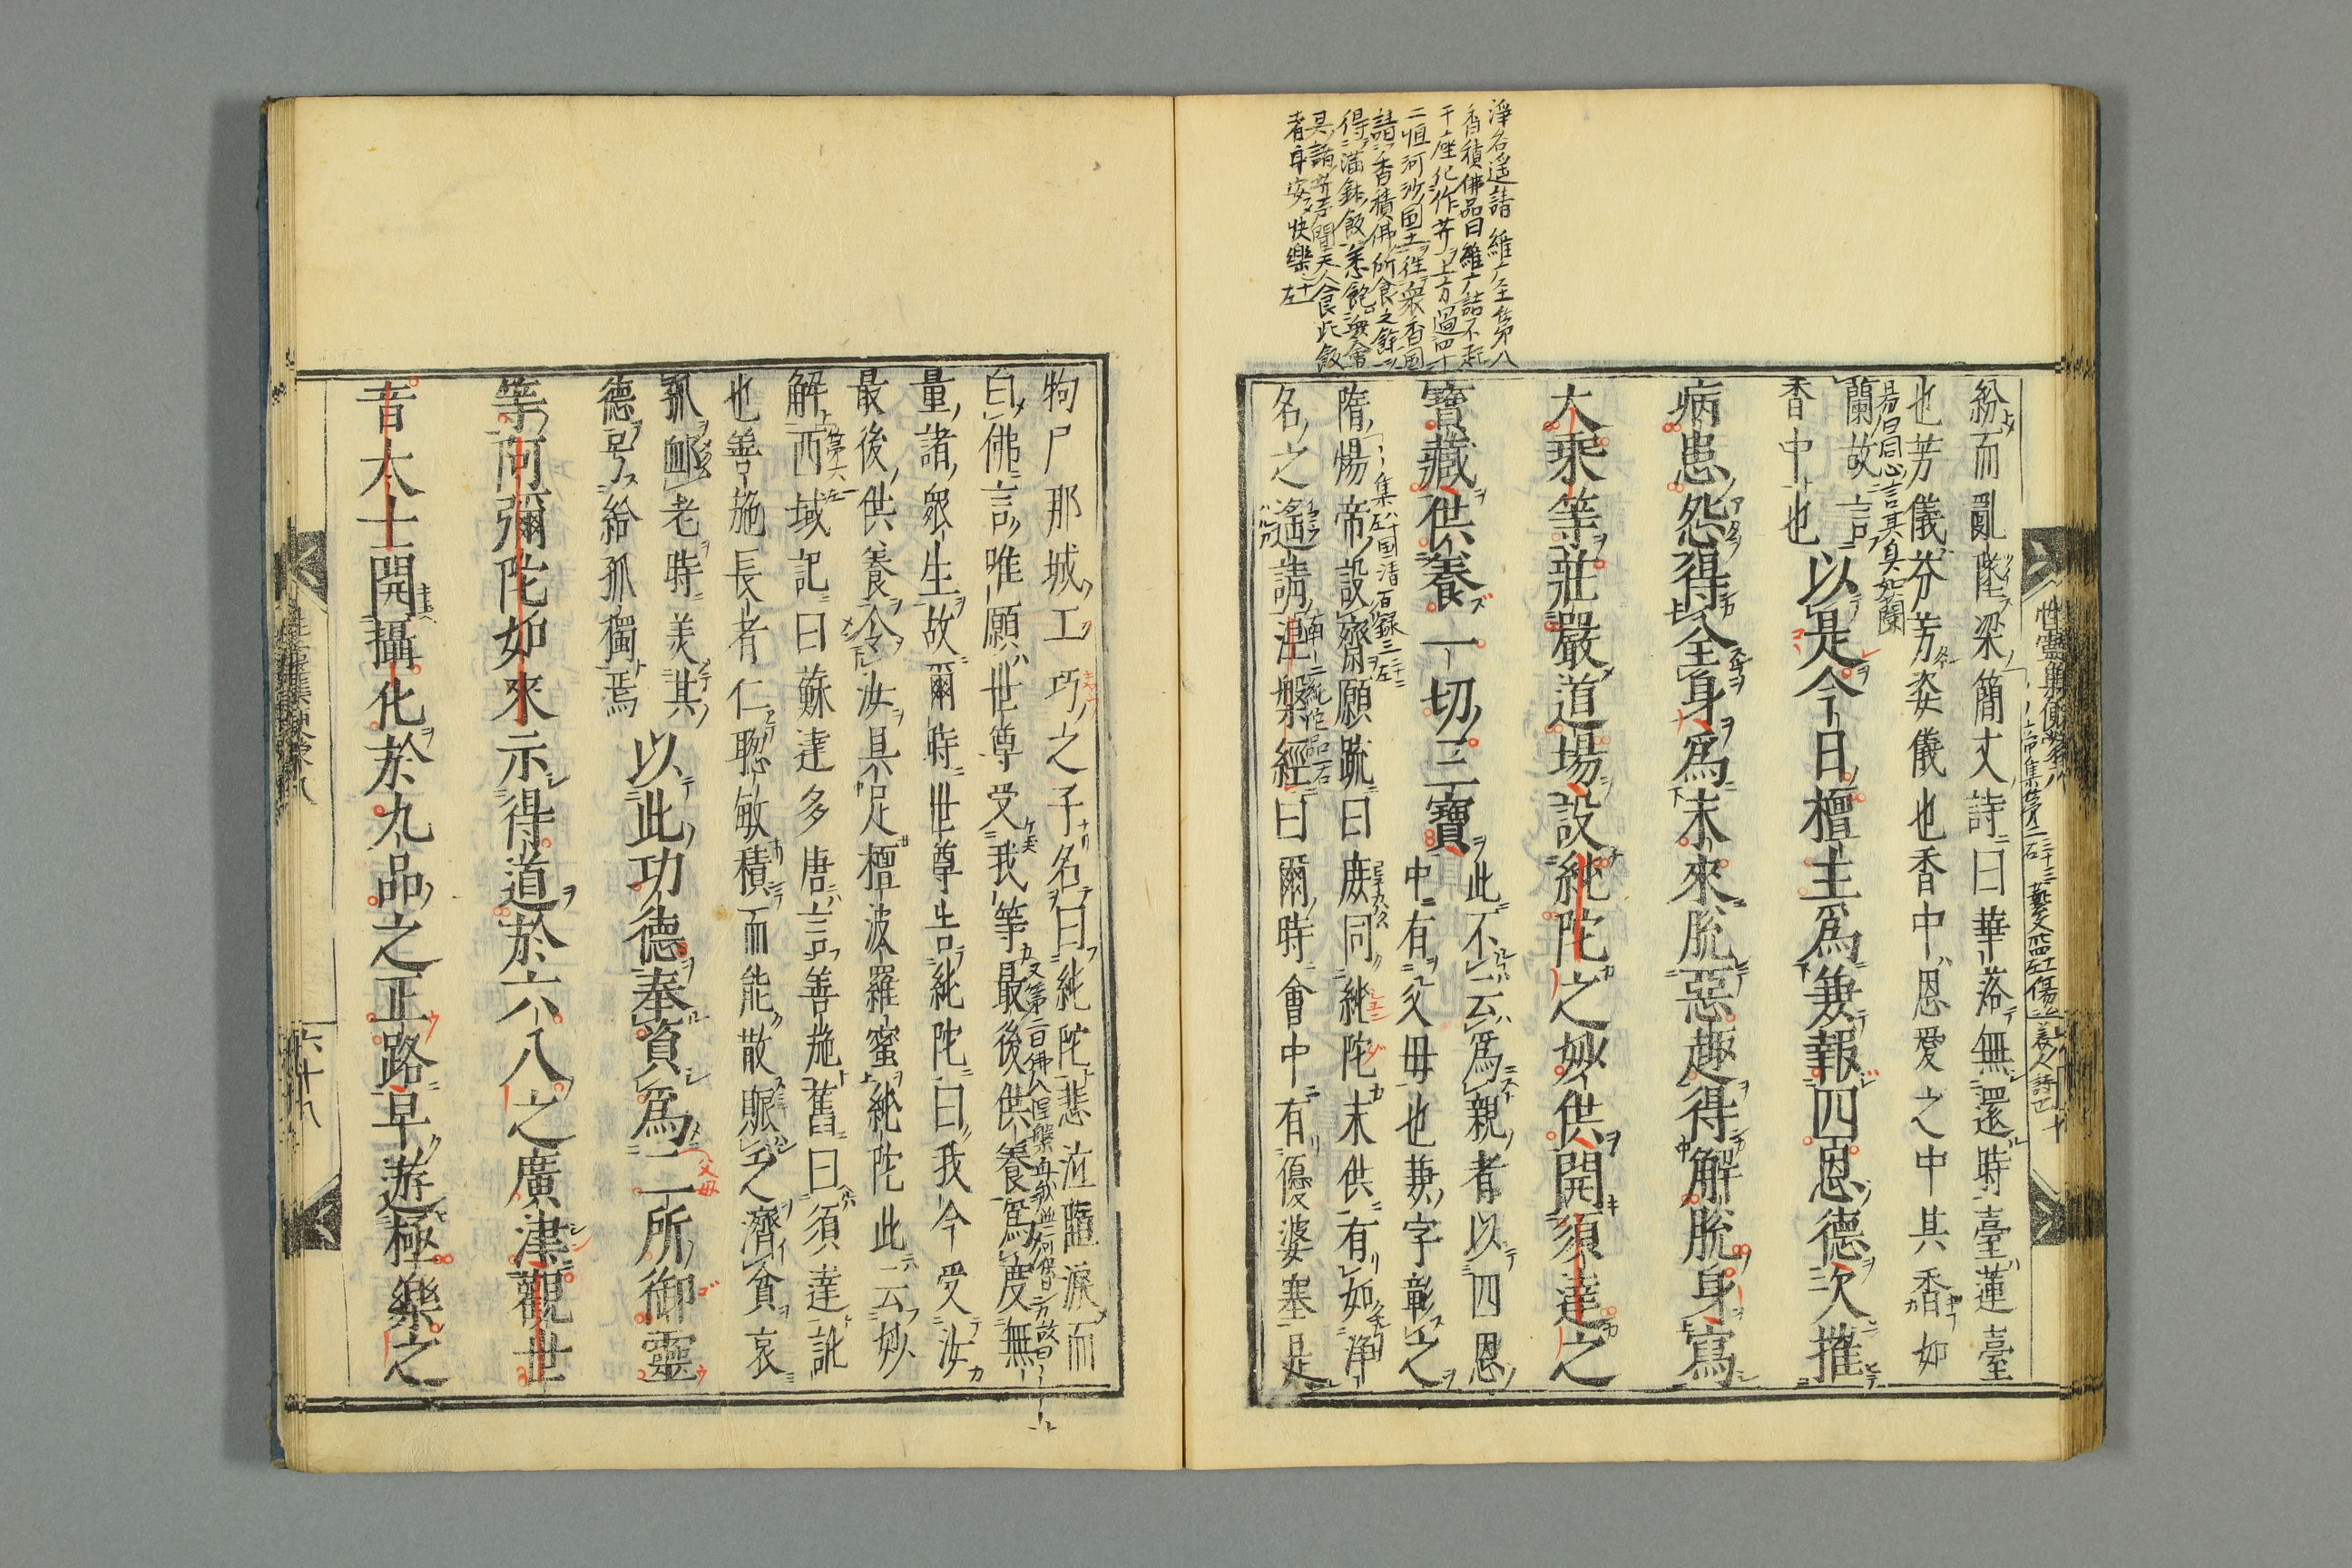 淨名遙請維广至巻第八
香積佛品曰維广詰不起
于座化作𦬇上方過四十
二恒河沙国土往衆香国
請香積佛所食之餘
得滿鉢飯悉飽衆會
其諸𦬇声聞天人食此飯
者身安快樂
紛而亂墜梁簡文詩曰華落無還時臺蓮臺
也芳儀芬芳姿儀也香中恩愛之中其香如
易曰同心言其臭如蘭
蘭故言
香中也
以是今日檀主爲兼報四恩德次摧
病患怨得全身爲末來脫惡趣得解脫身寫
大乘等莊嚴道場設純陀之妙供開須達之
寶藏供養一切三寶
此不云爲親者以四恩
中有父母也兼字彰之
集国清百録三
隋煬帝設齋願䟽曰庶同純陀末供有如淨
名之遙請涅槃經曰爾時會中有優婆塞是
拘尸那城工巧之子名曰純陀悲泣墮淚而
白佛言唯願世尊受我等最後供養爲度無
量諸衆生故爾時世尊告純陀曰我今受汝
最後供養令汝具足檀波羅蜜純陀此云妙
解西域記曰蘇達多唐言善施舊曰須達訛
也善施長者仁聰敏積而能散賑乏濟貧哀
孤䘏老時美其
德号給孤獨焉
以此功德奉資爲二所御靈
父母
等阿彌陀如來示得道於六八之廣津觀世
音大士開攝化於九品之正路早遊極樂之
六十八